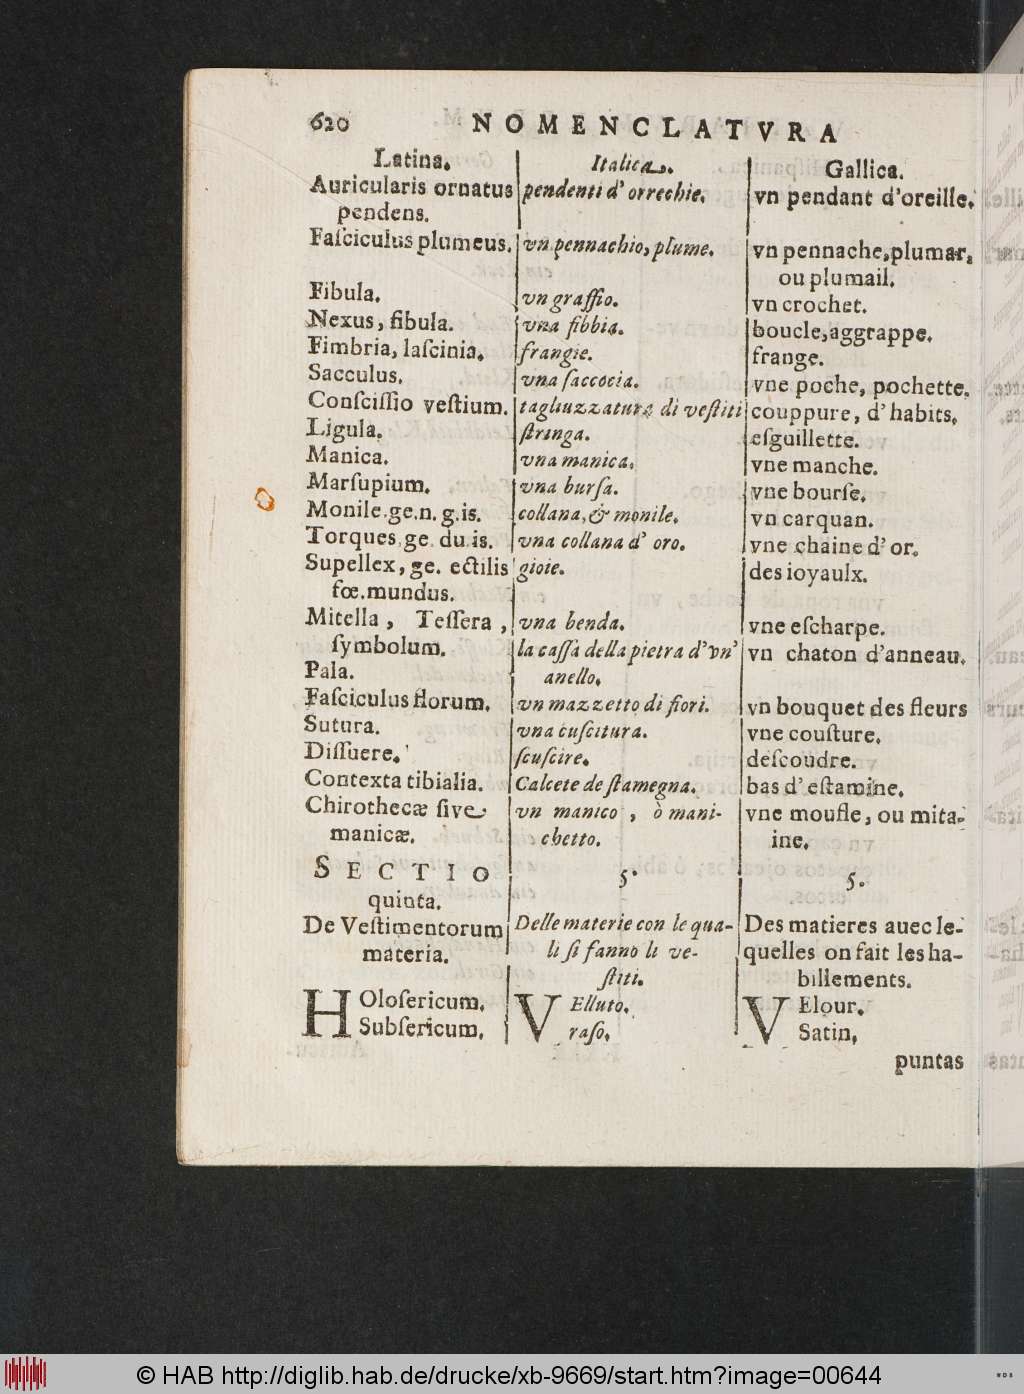 620 NOMENCLATVRA
Latina. Italica. Gallica.
Auricularis ornatus pendenti d' orrechie. vn pendant d'oreille.
pendens.
Faſciculus plumeus. vn pennachio, plume. vn pennache, plumar,
ou plumail.
Fibula. vn graffio. vn crochet.
Nexus, fibula. vna fibbia. boucle, aggrappe.
Fimbria, laſcinia. frangie. frange.
Sacculus. vna ſaccocia. vne poche, pochette.
Conſciſſio veſtium. tagliuzzatura di veſtiti couppure, d' habits.
Ligula. ſtringa. eſguillette.
Manica. vna manica. vne manche.
Marſupium. vna burſa. vne bourſe.
Monile.ge.n. g.is. collana, & monile. vn carquan.
Torques.ge. du.is. vna collana d' oro. vne chaine d' or.
Supellex, ge. ectilis gioie. des ioyaulx.
fœ.mundus.
Mitella, Teſſera, vna benda. vne eſcharpe.
ſymbolum. la caſſa della pietra d'vn' vn chaton d'anneau.
Pala. anello.
Faſciculus florum. vn mazzetto di fiori. vn bouquet des fleurs
Sutura. vna cuſcitura. vne couſture.
Diſſuere. ſcuſcire. deſcoudre.
Contexta tibialia. Calcete de ſtamegna. bas d' eſtamine.
Chirothecæ ſive vn manico, ò mani- vne moufle, ou mita-
manicæ. chetto. ine.
SECTIO 5. 5.
quinta.
De Veſtimentorum Delle materie con le qua- Des matieres auec le-
materia. li ſi fanno li ve- quelles on fait les ha-
ſtiti. billements.
HOloſericum. VElluto. VElour.
Subſericum. raſo. Satin.
puntas
© HAB http://diglib.hab.de/drucke/xb-9669/start.htm?image=00644